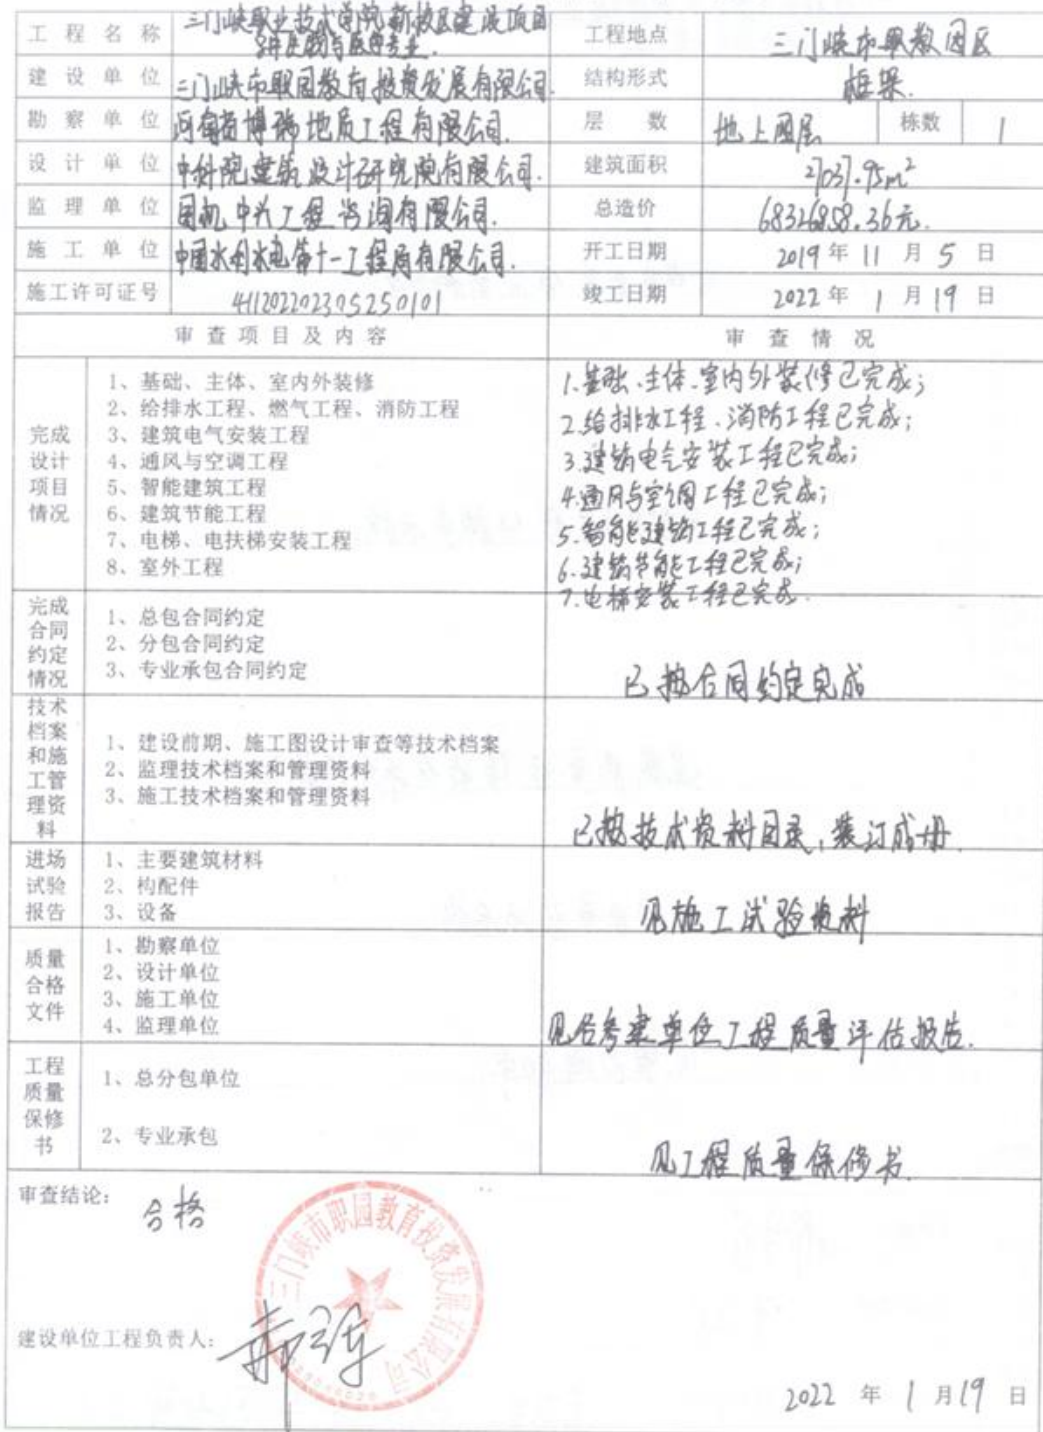 工程名称 三门峡职业技术学院新校区建设项目
工程地点 三门峡市职教园区
建设单位 三门峡市职园教育投资发展有限公司.
结构形式 框架.
勘察单位 河南省博瑞地质工程有限公司.
层数 地上四层 栋数 1
设计单位 中科院建筑设计研究院有限公司.
建筑面积 27037.95m²
监理单位 国机中兴工程咨询有限公司.
总造价 68326858.36元.
施工单位 中国水利水电第十一工程局有限公司.
开工日期 2019年11月5日
施工许可证号 411202202305250101
竣工日期 2022年1月19日
审查项目及内容 审查情况
完成设计项目情况
1、基础、主体、室内外装修
2、给排水工程、燃气工程、消防工程
3、建筑电气安装工程
4、通风与空调工程
5、智能建筑工程
6、建筑节能工程
7、电梯、电扶梯安装工程
8、室外工程
1.基础、主体、室内外装修已完成;
2.给排水工程、消防工程已完成;
3.建筑电气安装工程已完成;
4.通风与空调工程已完成;
5.智能建筑工程已完成;
6.建筑节能工程已完成;
7.电梯安装工程已完成.
完成合同约定情况
1、总包合同约定
2、分包合同约定
3、专业承包合同约定
已按合同约定完成
技术档案和施工管理资料
1、建设前期、施工图设计审查等技术档案
2、监理技术档案和管理资料
3、施工技术档案和管理资料
已按技术资料目录,装订成册.
进场试验报告
1、主要建筑材料
2、构配件
3、设备
见施工试验资料
质量合格文件
1、勘察单位
2、设计单位
3、施工单位
4、监理单位
见各参建单位工程质量评估报告.
工程质量保修书
1、总分包单位
2、专业承包
见工程质量保修书.
审查结论: 合格
三门峡市职园教育投资发展有限公司
建设单位工程负责人:
2022年1月19日